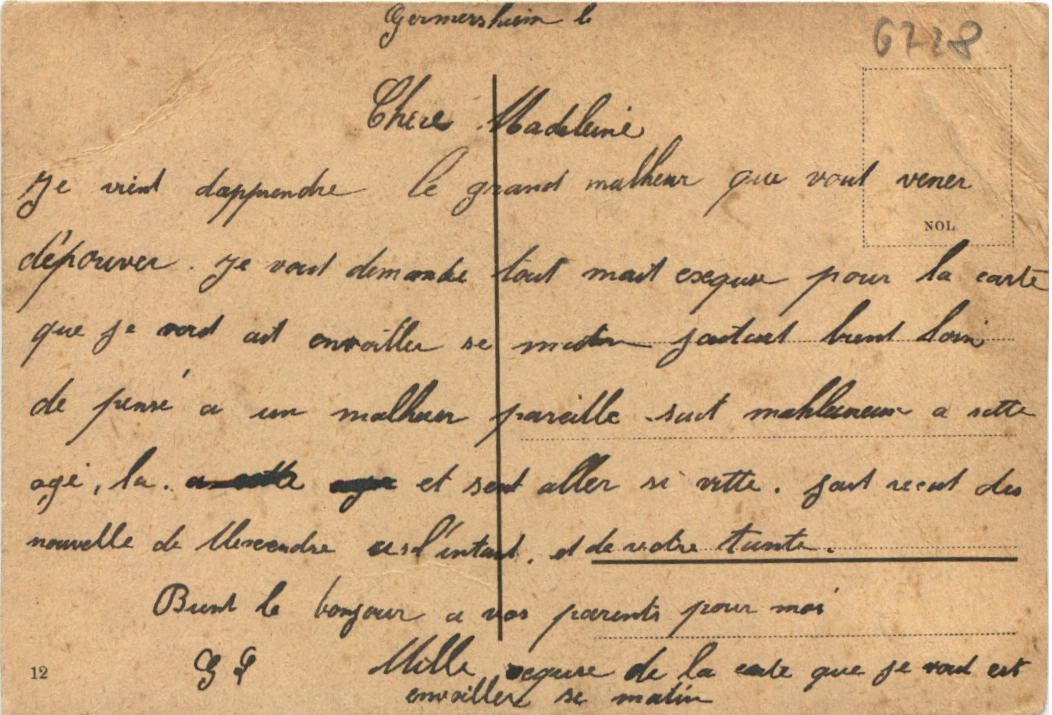 Germersheim le
6728
Chere Madeleine
Je vient dapprendre le grand malheur que vout vener
NOL
dépouver. Je vout demande tout mait exquse pour la carte
que je vout ait envoiller se matin jaitait bient loin
de pensé a un malheur pareille sait mahleureux a sette
agé, la. et sent aller si vitte. jait recut des
nouvelle de Alexendre a l'intant, et de votre tante.
Bient le bonjour a vos parents pour moi
12
G P Mille exquse de la carte que je vout est
envoiller se matin